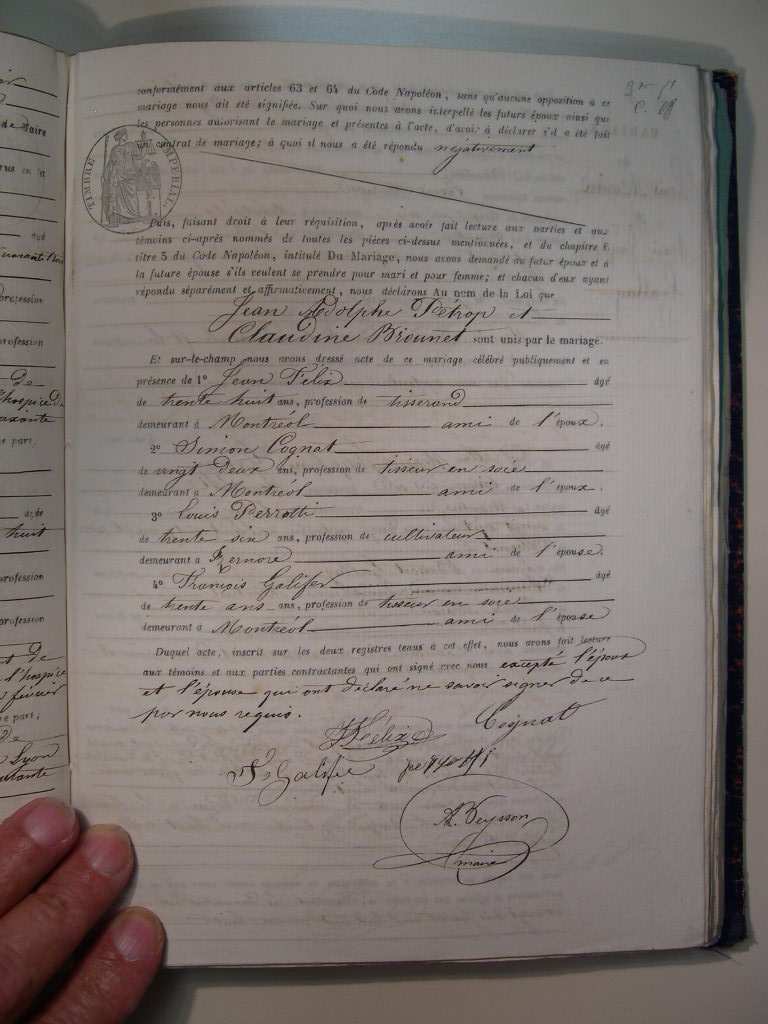 conformément aux articles 63 et 64 du Code Napoléon, sans qu'aucune opposition à ce
mariage nous ait été signifiée. Sur quoi nous avons interpellé les futurs époux ainsi que
les personnes autorisant le mariage et présentes à l'acte, d'avoir à déclarer s'il a été fait
un contrat de mariage; à quoi il nous a été répondu négativement
TIMBRE IMPÉRIAL
Puis, faisant droit à leur réquisition, après avoir fait lecture aux parties et aux
témoins ci-après nommés de toutes les pièces ci-dessus mentionnées, et du chapitre 6
titre 5 du Code Napoléon, intitulé Du Mariage, nous avons demandé au futur époux et à
la future épouse s'ils veulent se prendre pour mari et pour femme; et chacun d'eux ayant
répondu séparément et affirmativement, nous déclârons Au nom de la Loi que
Jean Adolphe Pétrop et
Claudine Brounet sont unis par le mariage.
Et sur-le-champ nous avons dressé acte de ce mariage célébré publiquement et en
présence de 1° Jean Félix âgé
de trente huit ans, profession de tisserand
demeurant à Montréol ami de l'époux.
2° Simon Cognat âgé
de vingt deux ans, profession de tisseur en soie
demeurant à Montréol ami de l'époux.
3° Louis Perrotti âgé
de trente six ans, profession de cultivateur
demeurant à ami de l'épouse.
4° François Galifer âgé
de trente ans ans, profession de tisseur en soie
demeurant à Montréol ami de l'épouse
Duquel acte, inscrit sur les deux registres tenus à cet effet, nous avons fait lecture
aux témoins et aux parties contractantes qui ont signé avec nous excepté l'époux
et l'épouse qui ont déclaré ne savoir signer de ce
par nous requis.
Félix Cognat
Galifer
Veysson
maire